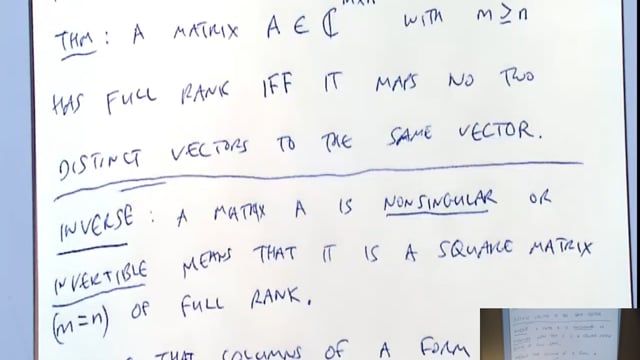 THM: A MATRIX A ∈ ℂ^m×n WITH m ≥ n
HAS FULL RANK IFF IT MAPS NO TWO
DISTINCT VECTORS TO THE SAME VECTOR.
INVERSE: A MATRIX A IS NONSINGULAR OR
INVERTIBLE MEANS THAT IT IS A SQUARE MATRIX
(m=n) OF FULL RANK.
THAT COLUMNS OF A FORM